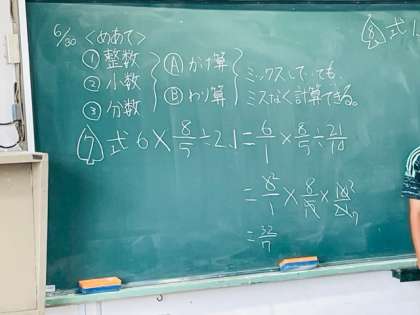 6/30 <めあて>
① 整数
② 小数
③ 分数
Ⓐ かけ算
Ⓑ わり算
ミックスしていても、
ミスなく計算できる。
⑧ 式
⑦ 式 6×8/5÷2.1=6/1×8/5÷21/10
=6²/1×8/5×10²/21₇
=32/7